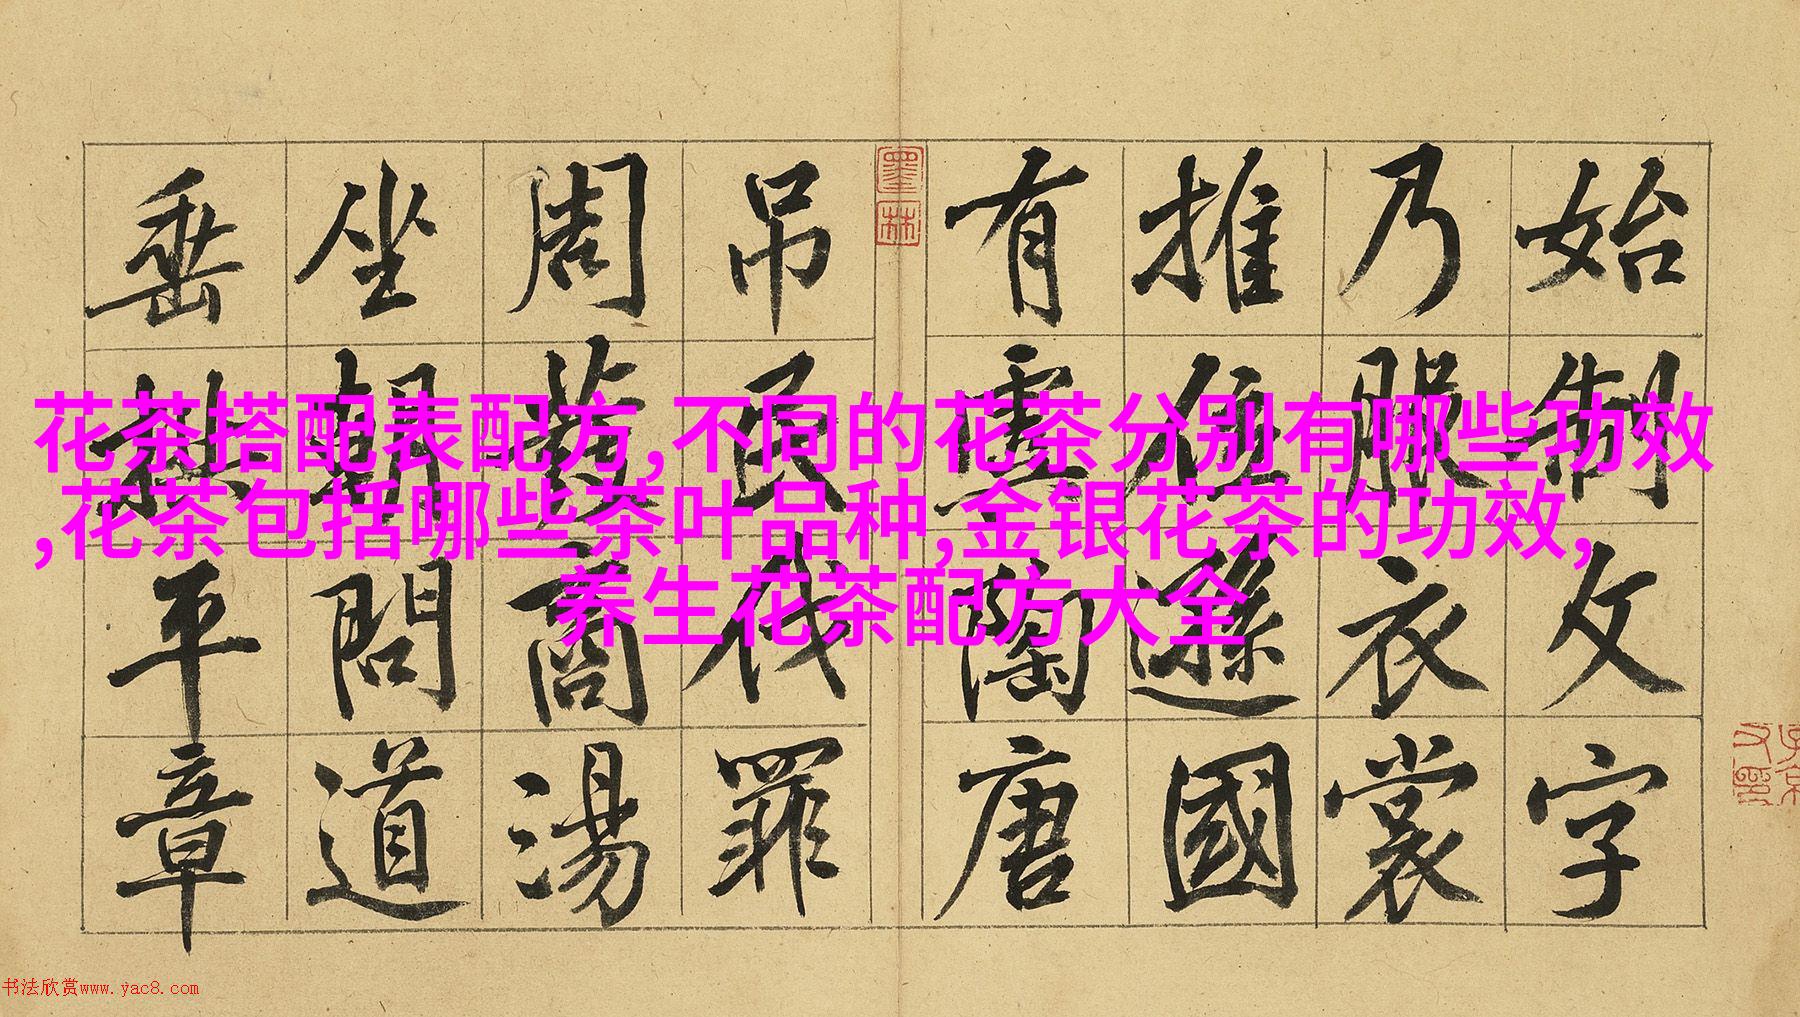 花茶搭配表配方,不同的花茶分别有哪些功效
,花茶包括哪些茶叶品种,金银花茶的功效,
养生花茶配方大全
始制文字
乃服衣裳
推位遜國
有虞陶唐
吊民伐罪
周發商湯
坐朝問道
垂拱平章
墨林
书法欣赏www.yac8.com